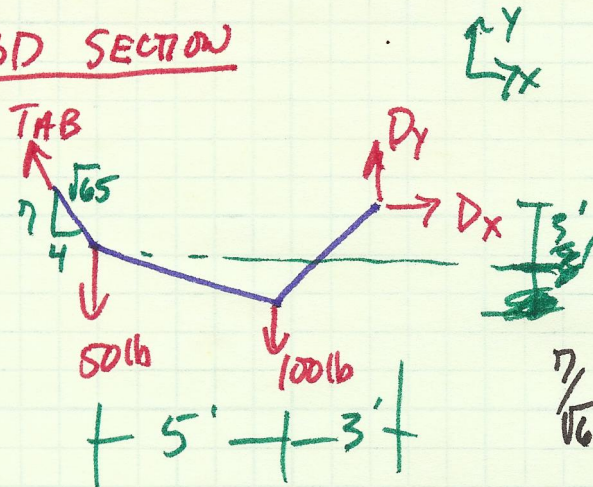 BD SECTION
Y
X
TAB
Dy
√65
7
4
Dx
50lb
100lb
5'
3'
7/√6